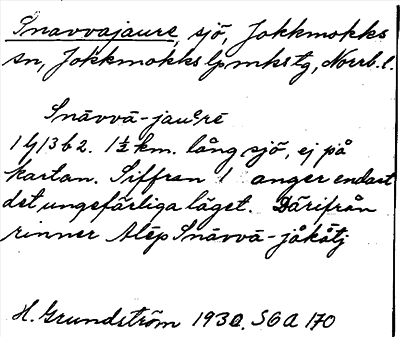 Snavvajaure, sjö, Jokkmokks
sn, Jokkmokks lpmkstg, Norrb.l.
Snāvvā-jauᵉrē
1 4 13 b 2. 1½ km. lång sjö, ej på
kartan. Siffran 1 anger endast
det ungefärliga läget. Därifrån
rinner Alēp Snāvvā-jåkåtj
H. Grundström 1930. SOA 170